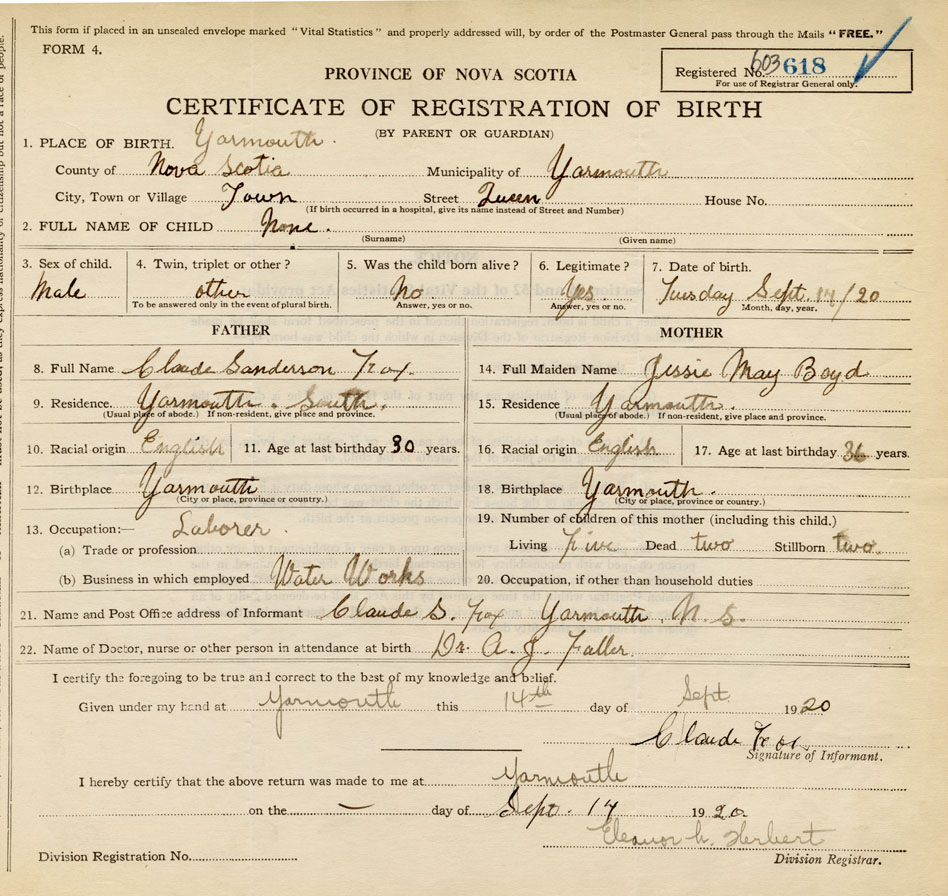 This form if placed in an unsealed envelope marked "Vital Statistics" and properly addressed will, by order of the Postmaster General pass through the Mails "FREE."
FORM 4.
Registered No. 603 618
For use of Registrar General only.
PROVINCE OF NOVA SCOTIA
CERTIFICATE OF REGISTRATION OF BIRTH
(BY PARENT OR GUARDIAN)
1. PLACE OF BIRTH. Yarmouth.
County of Nova Scotia Municipality of Yarmouth
City, Town or Village Town Street Queen House No.
(If birth occurred in a hospital, give its name instead of Street and Number)
2. FULL NAME OF CHILD None.
(Surname) (Given name)
3. Sex of child. 4. Twin, triplet or other? 5. Was the child born alive? 6. Legitimate? 7. Date of birth.
Male other No. Yes Tuesday Sept. 14/20
To be answered only in the event of plural birth. Answer, yes or no. Answer, yes or no. Month, day, year.
FATHER MOTHER
8. Full Name Claude Sanderson Fox. 14. Full Maiden Name Jessie May Boyd
9. Residence. Yarmouth. South. 15. Residence Yarmouth.
(Usual place of abode.) If non-resident, give place and province. (Usual place of abode.) If non-resident, give place and province.
10. Racial origin English 11. Age at last birthday 30 years. 16. Racial origin English 17. Age at last birthday 36 years.
12. Birthplace Yarmouth 18. Birthplace Yarmouth.
(City or place, province or country.) (City or place, province or country.)
13. Occupation:— Laborer. 19. Number of children of this mother (including this child.)
(a) Trade or profession Living five Dead two Stillborn two.
(b) Business in which employed Water Works 20. Occupation, if other than household duties
21. Name and Post Office address of Informant Claude S. Fox Yarmouth, N. S.
22. Name of Doctor, nurse or other person in attendance at birth Dr. A. J. Fuller.
I certify the foregoing to be true and correct to the best of my knowledge and belief.
Given under my hand at Yarmouth this 14th day of Sept. 1920
Claude Fox
Signature of Informant.
I hereby certify that the above return was made to me at Yarmouth
on the — day of Sept. 17 1920.
Eleanor h. Herbert
Division Registrar.
Division Registration No.